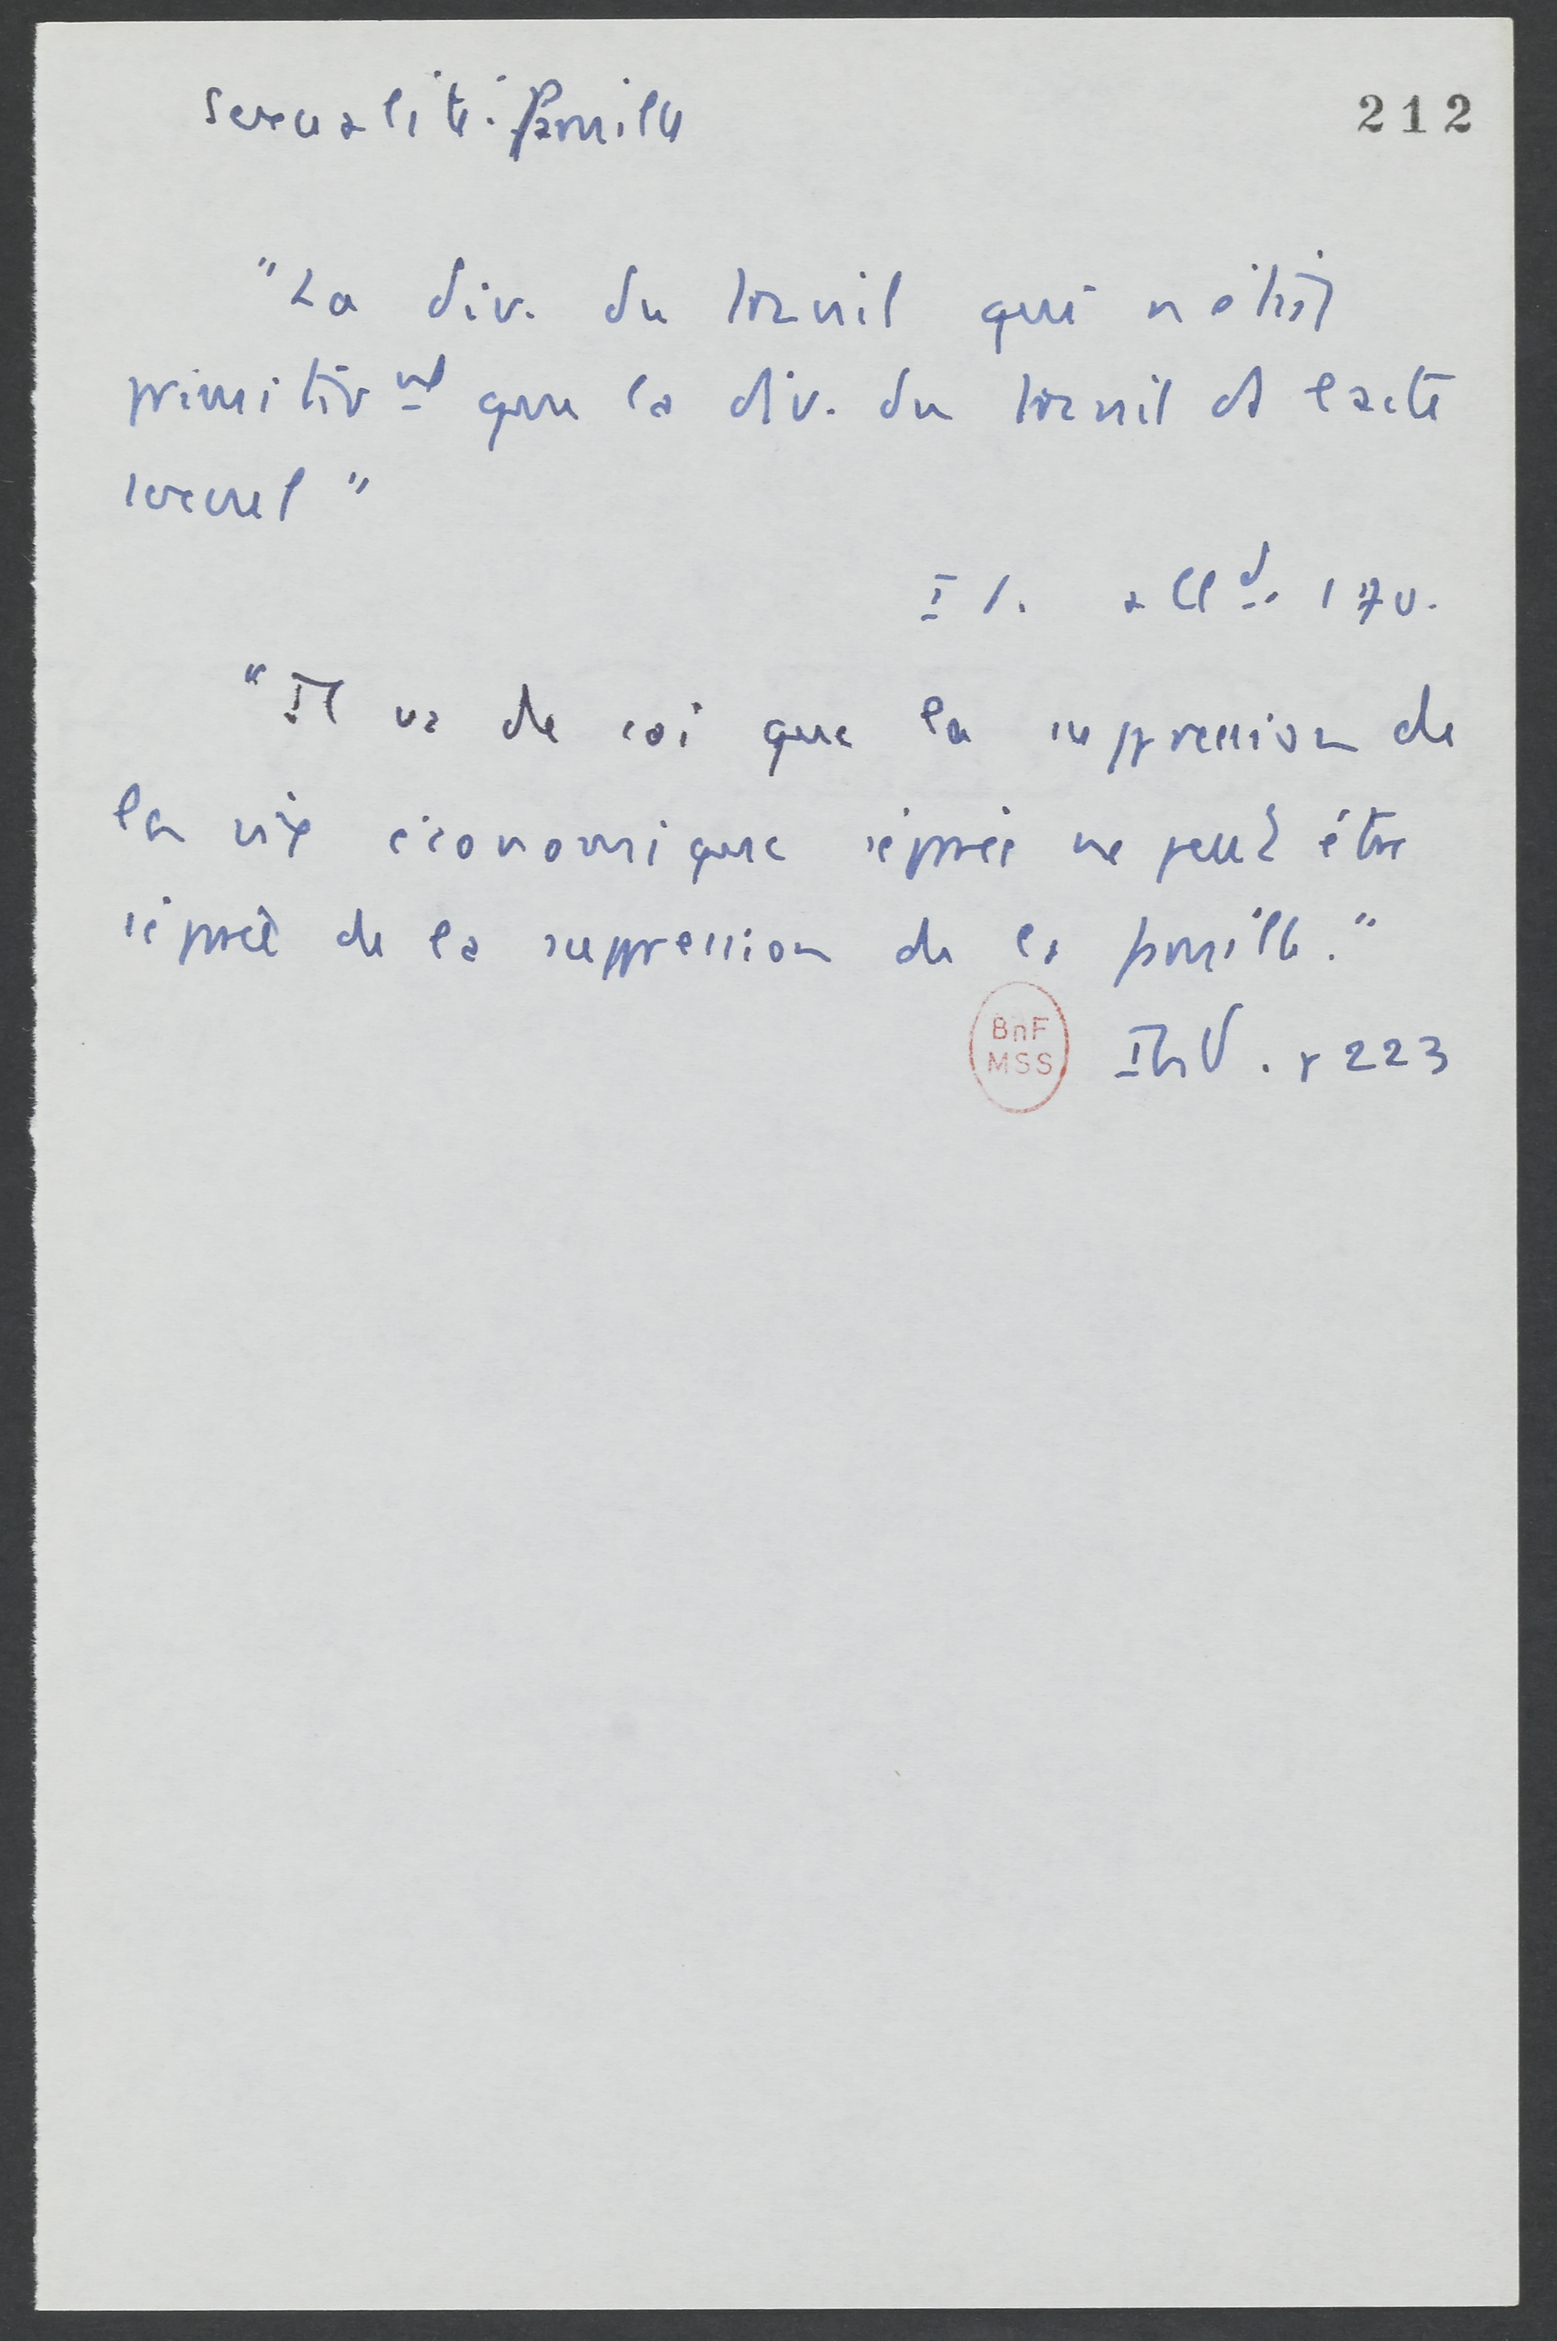 Sexualité. famille
212
"La div. du travail qui n'était
primitivmt que la div. du travail ds l'acte
sexuel"
Id. allde. 170.
"Il va de soi que la suppression de
la vie économique séparée ne peut être
séparée de la suppression de la famille."
BnF
MSS
Ibid. p 223